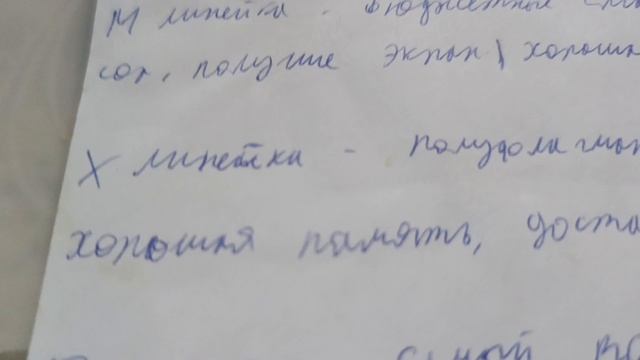 М линейка - бюджетные
сок, получше экран, хороша
X линейка - полуфлагман
хорошая память, доста
самый